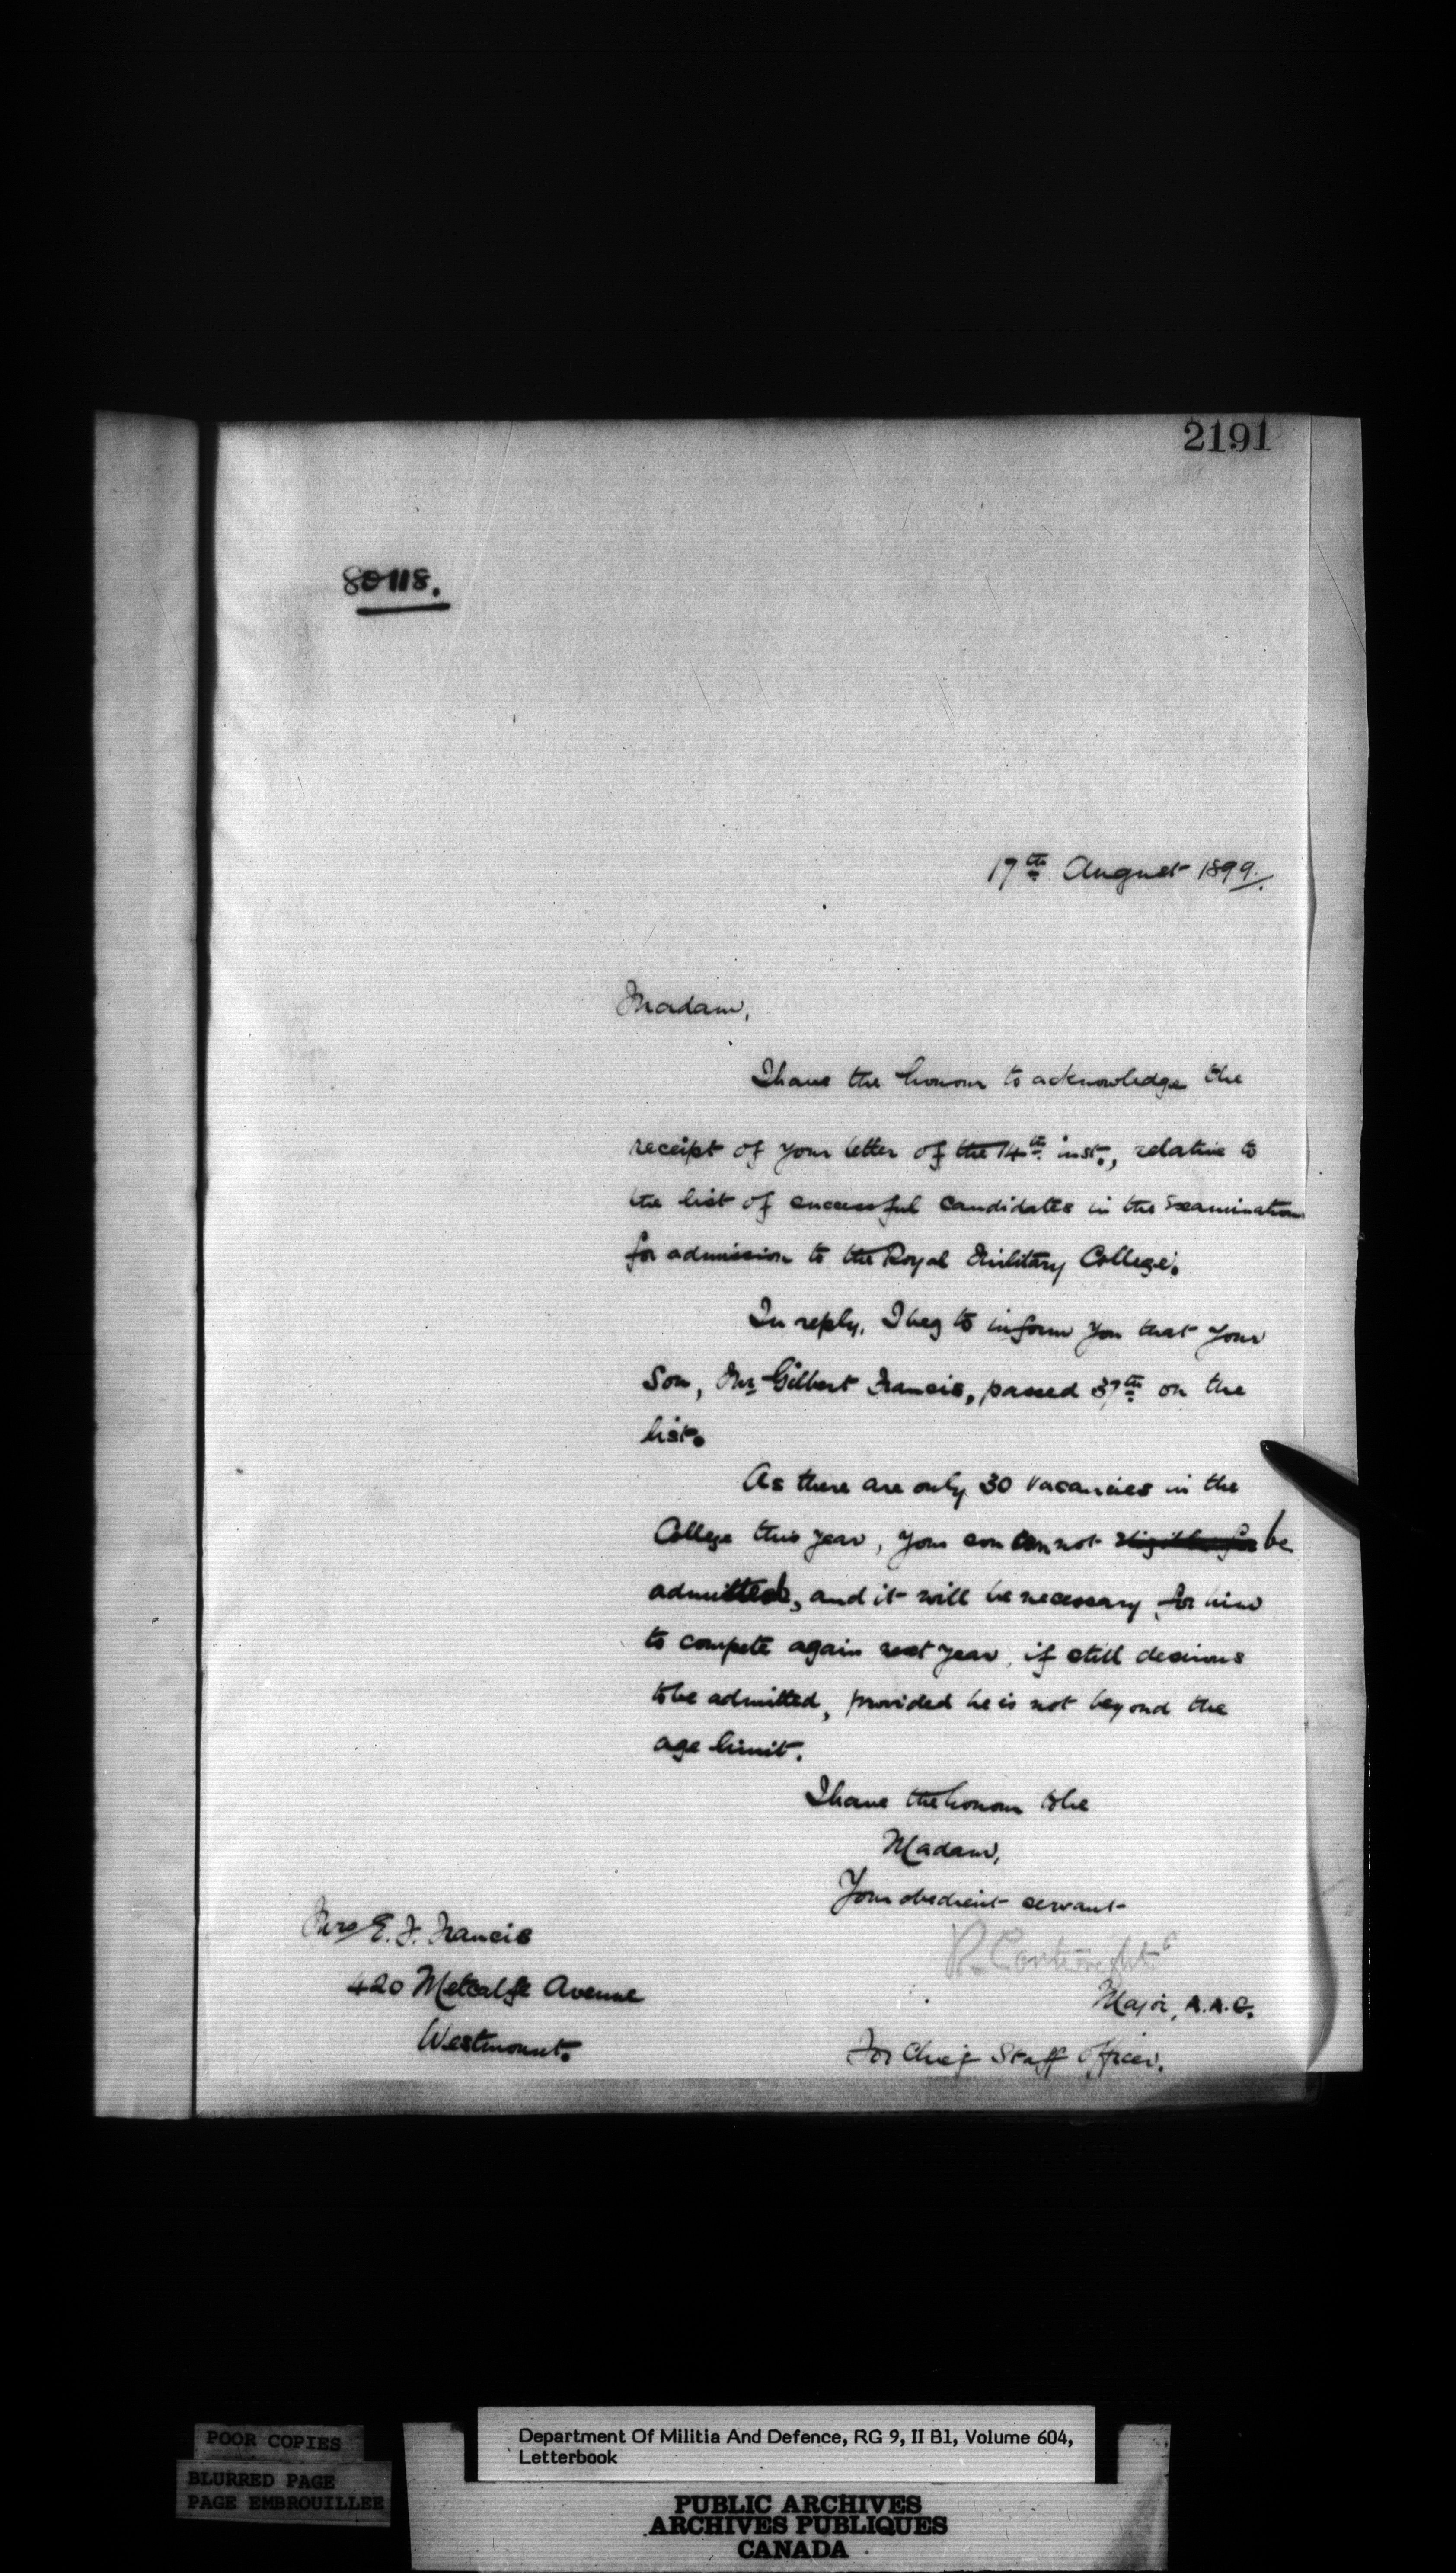 2191
80118.
17th August 1899.
Madam,
I have the honour to acknowledge the
receipt of your letter of the 14th inst., relative to
the list of successful candidates in the Examination
for admission to the Royal Military College.
In reply, I beg to inform you that your
Son, Mr. Gilbert Francis, passed 37th on the
list.
As there are only 30 vacancies in the
College this year, your son cannot be
admitted, and it will be necessary for him
to compete again next year, if still desirous
to be admitted, provided he is not beyond the
age limit.
I have the honour to be
Madam,
Your obedient servant
R. Cartwright
Major, A.A.G.
For Chief Staff Officer.
Mrs E. F. Francis
420 Metcalfe Avenue
Westmount.
POOR COPIES
BLURRED PAGE
PAGE EMBROUILLEE
Department Of Militia And Defence, RG 9, II B1, Volume 604,
Letterbook
PUBLIC ARCHIVES
ARCHIVES PUBLIQUES
CANADA